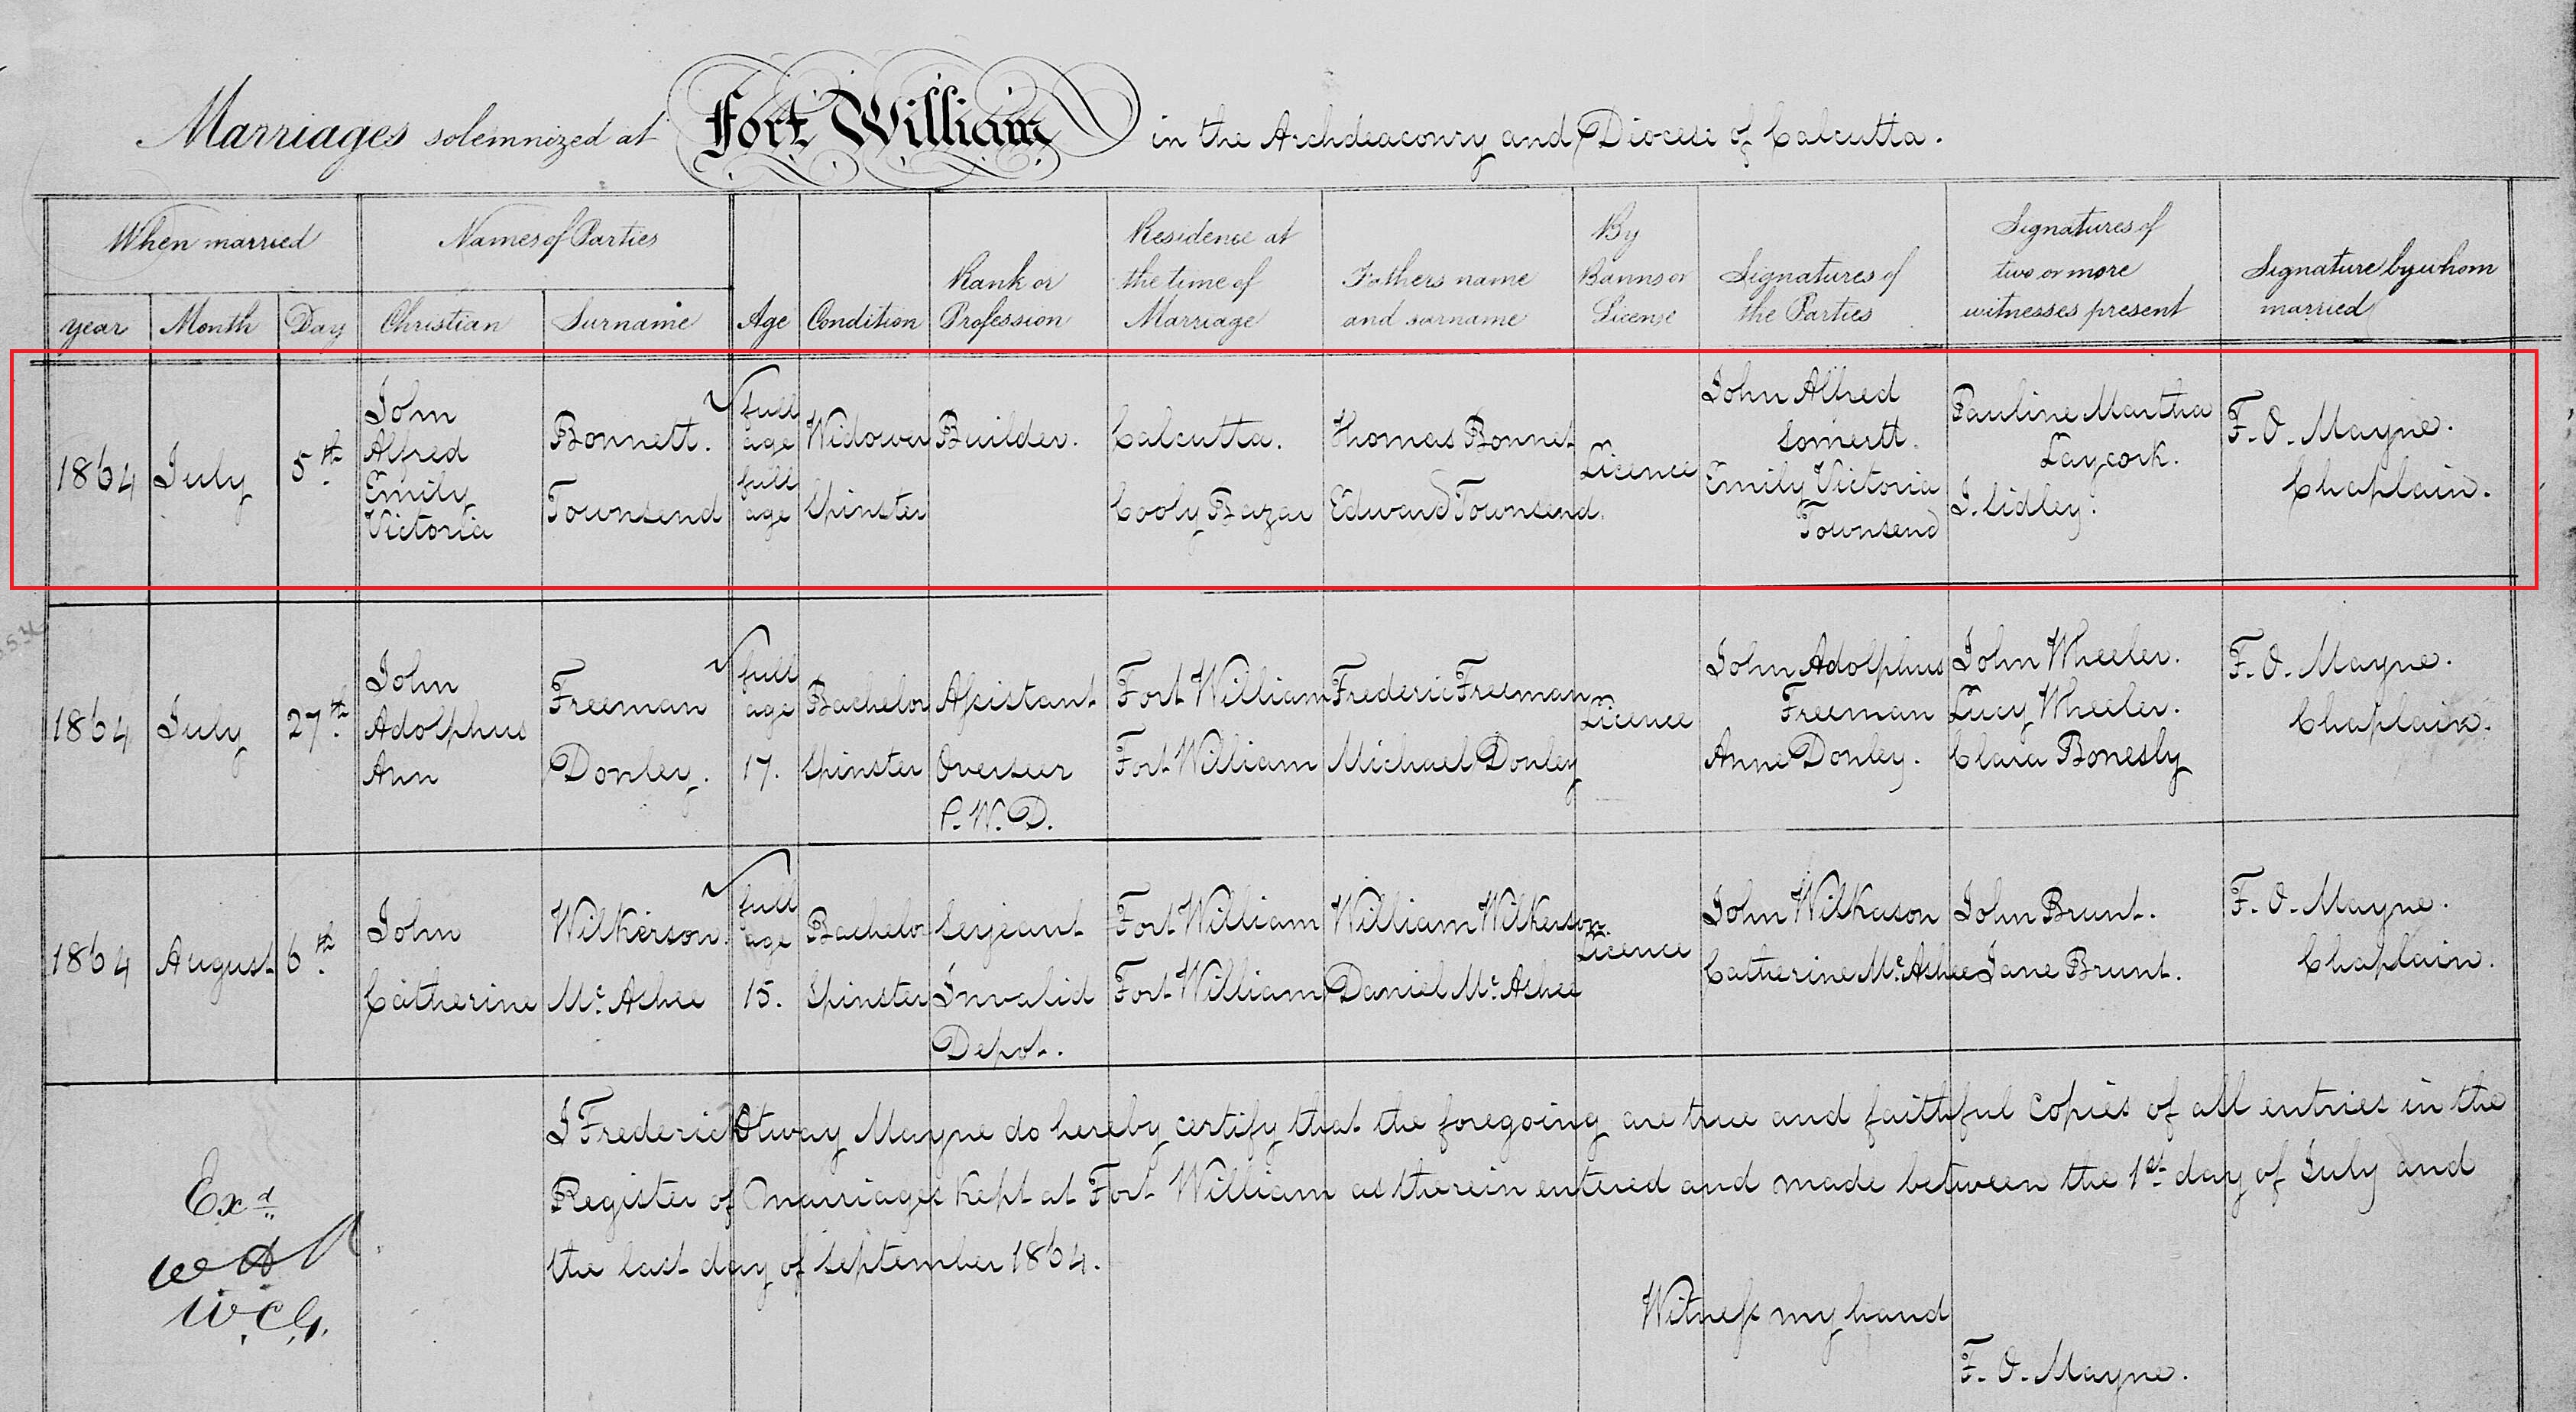 Marriages solemnized at Fort William in the Archdeaconry and Diocese of Calcutta.
When married
Names of Parties
Age
Condition
Rank or
Profession
Residence at
the time of
Marriage
Fathers name
and surname
By
Banns or
License
Signatures of
the Parties
Signatures of
two or more
witnesses present
Signature by whom
married
year
Month
Day
Christian
Surname
1864
July
5th
John
Alfred
Emily
Victoria
Bonnett.
Townsend
full
age
full
age
Widower
Spinster
Builder.
Calcutta.
Cooly Bazar
Thomas Bonnet
Edward Townsend.
Licence
John Alfred
Emily Victoria
Townsend
Pauline Martha
Laycock.
F. O. Mayne.
Chaplain.
1864
July
27th
John
Adolphus
Ann
Freeman
Donley.
full
age
17.
Bachelor
Spinster
Assistant
Overseer
P. W. D.
Fort William
Fort William
Frederic Freeman
Michael Donley
Licence
John Adolphus
Freeman
Anne Donley.
John Wheeler.
Lucy Wheeler.
Clara Bonesly
F. O. Mayne.
Chaplain.
1864
August
6th
John
Catherine
Wilkerson.
Mc Ashee
full
age
15.
Bachelor
Spinster
Serjeant
Invalid
Depot.
Fort William
Fort William
William Wilkerson.
Daniel Mc Ashee
Licence
John Wilkason
Catherine Mc Ashee
John Brunt.
Jane Brunt.
F. O. Mayne.
Chaplain.
I Frederick Otway Mayne do hereby certify that the foregoing are true and faithful Copies of all entries in the
Register of Marriages kept at Fort William as therein entered and made between the 1st day of July and
the last day of September 1864.
Exd
W.C.G.
Witness my hand
F. O. Mayne.